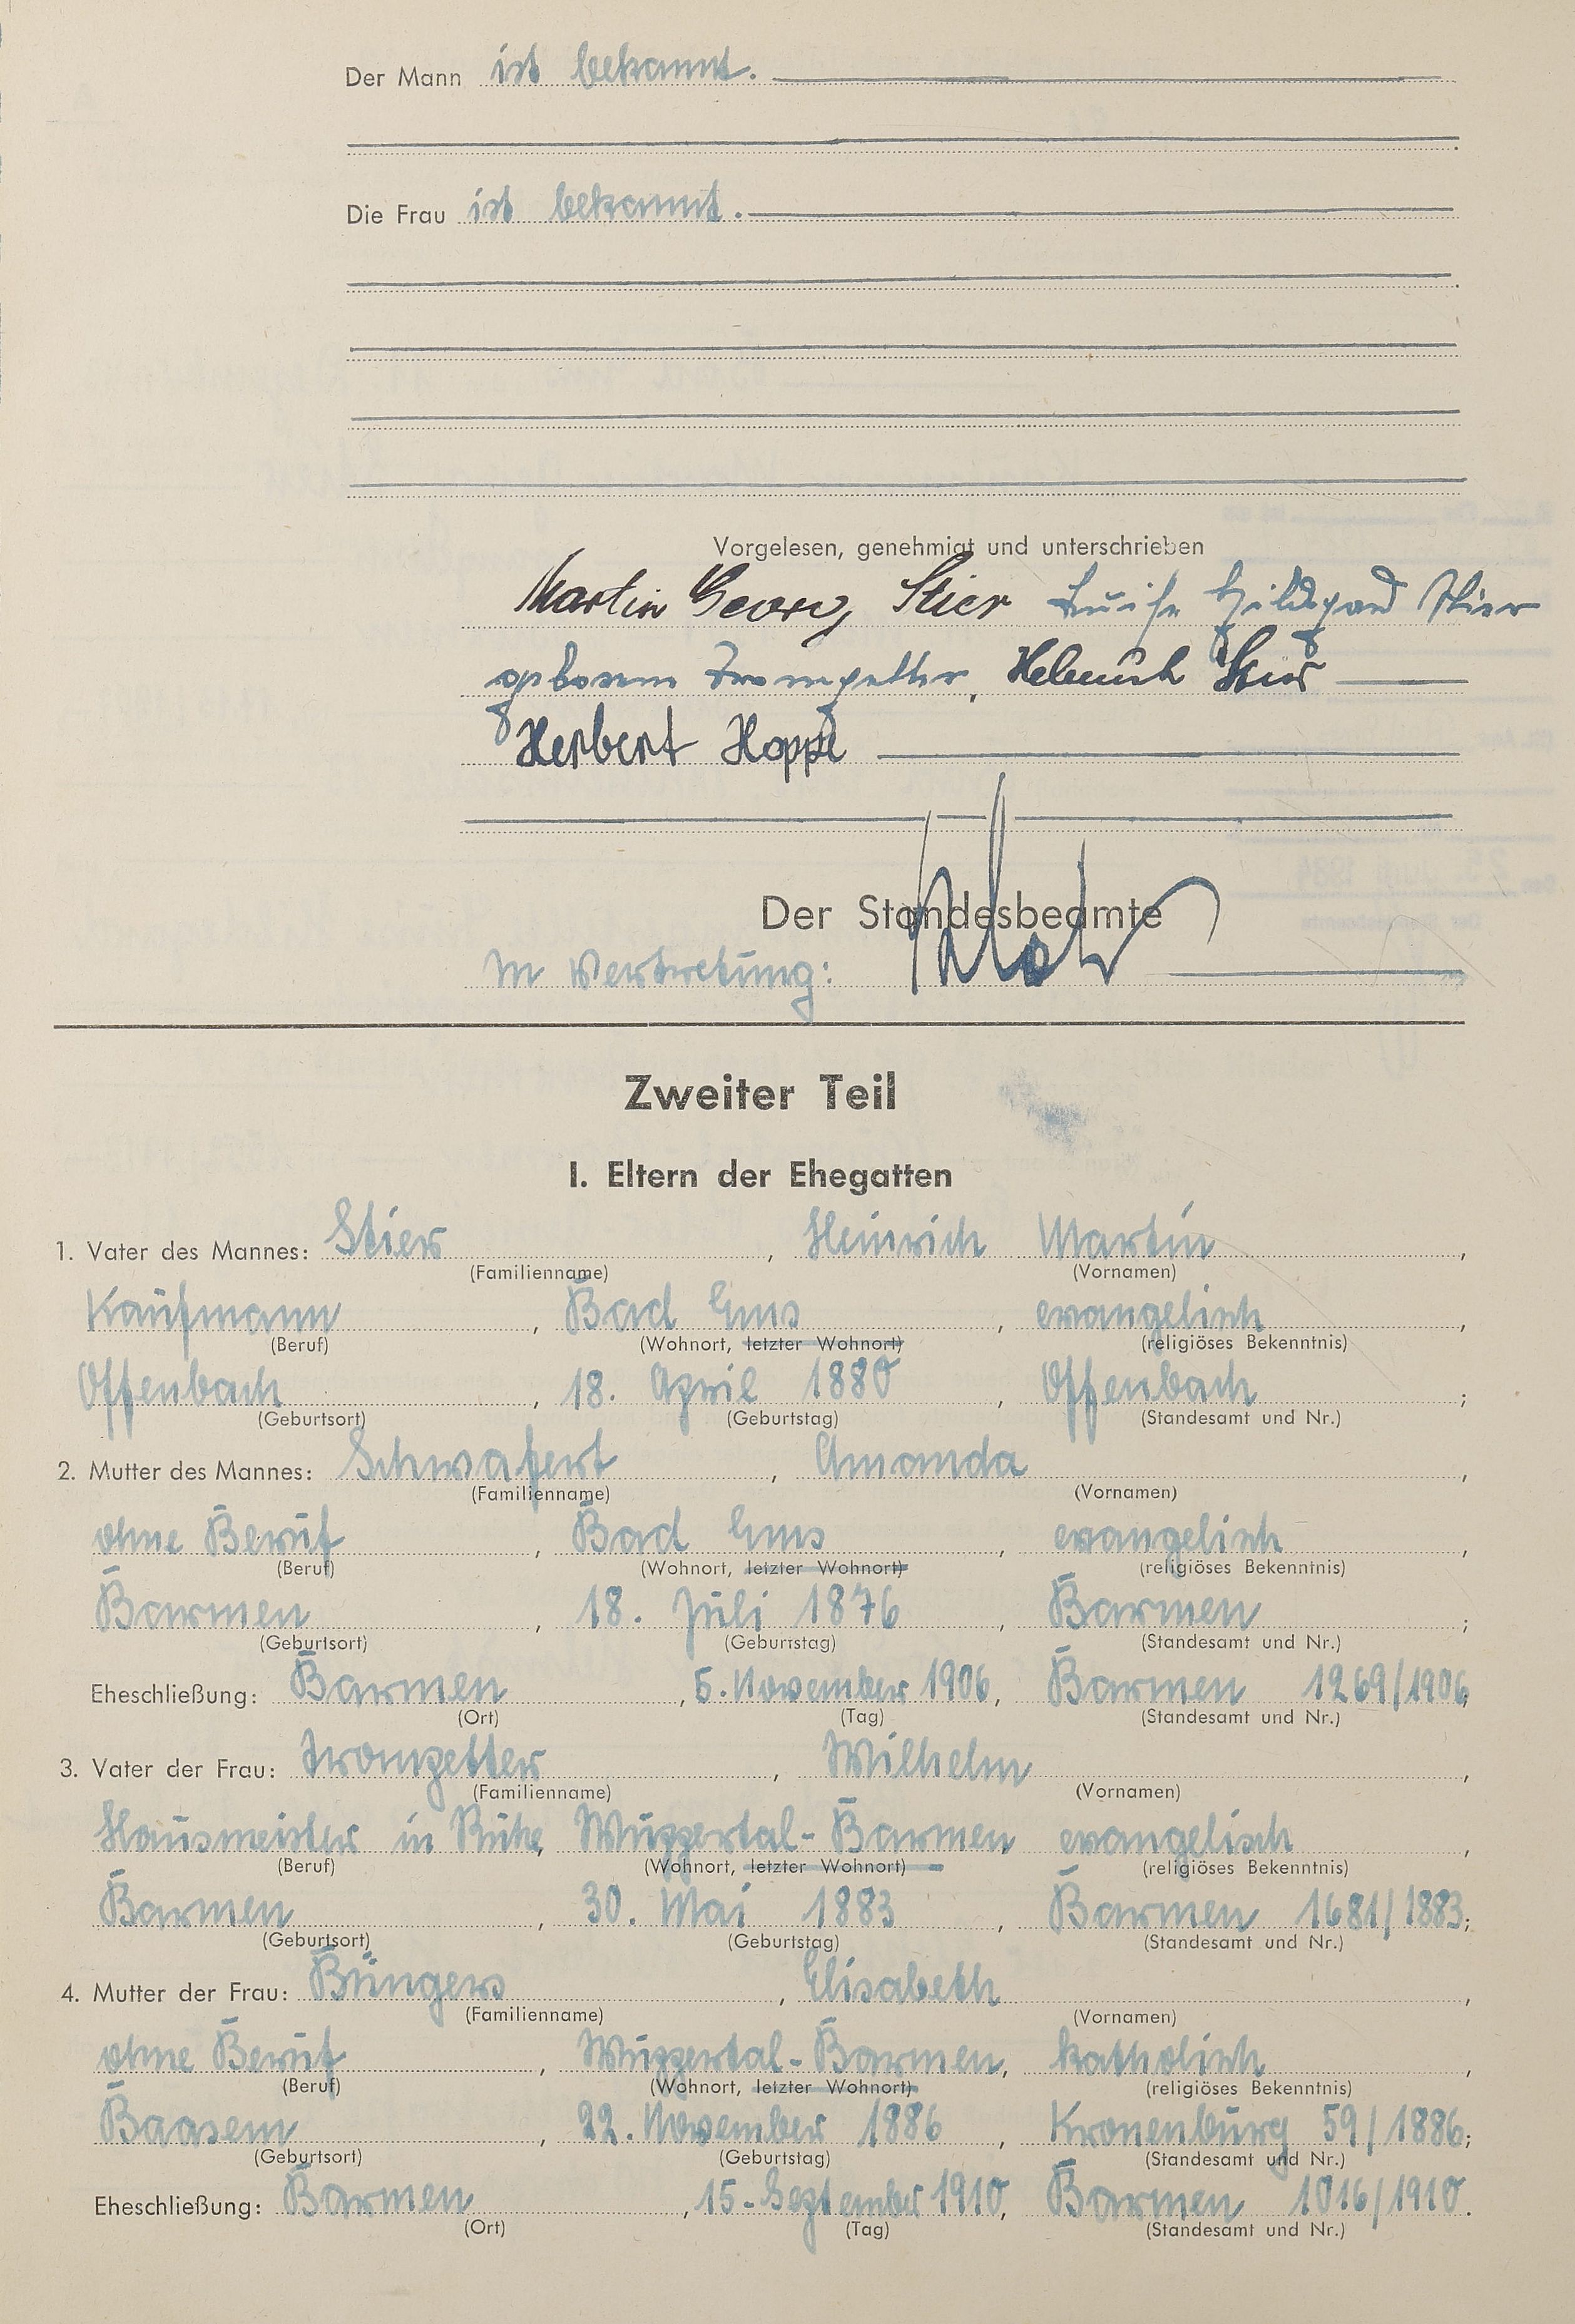 Der Mann ist bekannt.
Die Frau ist bekannt.
Vorgelesen, genehmigt und unterschrieben
Martin Georg Stier Luise Hildegard Stier
geborene Trompetter, Helmuth Stier
Herbert Hoppe
Der Standesbeamte
In Vertretung:
Zweiter Teil
I. Eltern der Ehegatten
1. Vater des Mannes: Stier, Heinrich Martin,
(Familienname) (Vornamen)
Kaufmann, Bad Ems, evangelisch,
(Beruf) (Wohnort, letzter Wohnort) (religiöses Bekenntnis)
Offenbach, 18. April 1880, Offenbach;
(Geburtsort) (Geburtstag) (Standesamt und Nr.)
2. Mutter des Mannes: Schwafert, Amanda,
(Familienname) (Vornamen)
ohne Beruf, Bad Ems, evangelisch,
(Beruf) (Wohnort, letzter Wohnort) (religiöses Bekenntnis)
Barmen, 18. Juli 1876, Barmen;
(Geburtsort) (Geburtstag) (Standesamt und Nr.)
Eheschließung: Barmen, 5. November 1906, Barmen 1269/1906;
(Ort) (Tag) (Standesamt und Nr.)
3. Vater der Frau: Trompetter, Wilhelm,
(Familienname) (Vornamen)
Hausmeister in Ruhe, Wuppertal-Barmen, evangelisch,
(Beruf) (Wohnort, letzter Wohnort) (religiöses Bekenntnis)
Barmen, 30. Mai 1883, Barmen 1681/1883;
(Geburtsort) (Geburtstag) (Standesamt und Nr.)
4. Mutter der Frau: Büngers, Elisabeth,
(Familienname) (Vornamen)
ohne Beruf, Wuppertal-Barmen, katholisch,
(Beruf) (Wohnort, letzter Wohnort) (religiöses Bekenntnis)
Baasem, 22. November 1886, Kronenburg 59/1886;
(Geburtsort) (Geburtstag) (Standesamt und Nr.)
Eheschließung: Barmen, 15. September 1910, Barmen 1016/1910.
(Ort) (Tag) (Standesamt und Nr.)